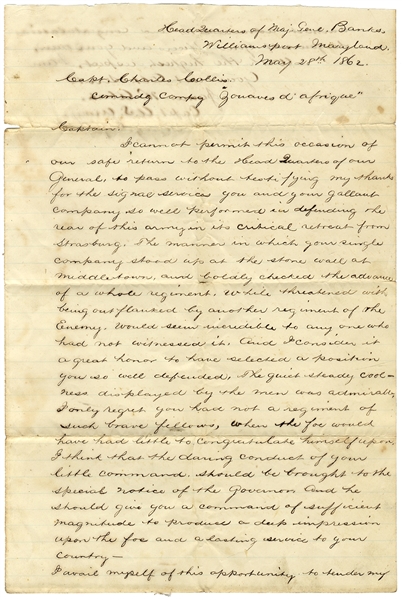 Head Quarters of Maj. Genl. Banks
Williamsport Maryland.
May 28th 1862.
Capt. Charles Collis
Commdg Compy "Zouaves d'afrique"
Captain:
I cannot permit this occasion of
our safe return to the Head Quarters of our
General, to pass without testifying my thanks
for the signal service you and your gallant
company so well performed in defending the
rear of this army in its critical retreat from
Strasburg. The manner in which your single
company stood up at the stone wall at
Middletown, and boldly checked the advance
of a whole regiment, while threatened with
being outflanked by another regiment of the
Enemy, would seem incredible to any one who
had not witnessed it, and I consider it
a great honor to have selected a position
you so well defended, The quiet steady cool-
ness displayed by the men was admirable,
I only regret you had not a regiment of
such brave fellows, when the foe would
have had little to congratulate himself upon,
I think that the daring conduct of your
little command should be brought to the
special notice of the Governor and he
should give you a command of sufficient
magnitude to produce a deep impression
upon the foe and a lasting service to your
country—
I avail myself of this opportunity to tender my